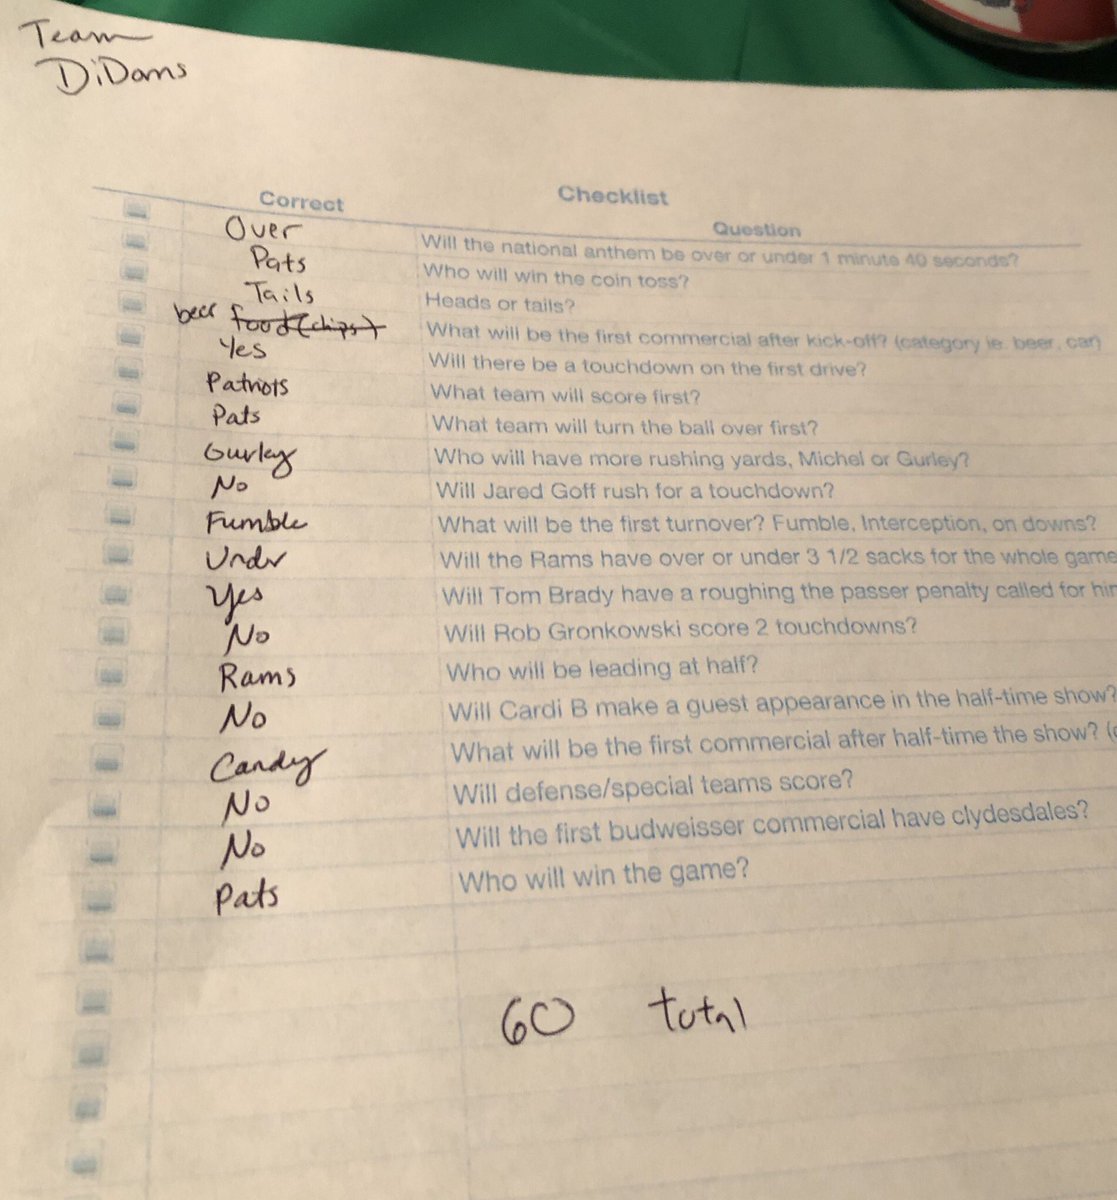 Team
DiDams
Checklist
Correct Question
Over Will the national anthem be over or under 1 minute 40 seconds?
Pats Who will win the coin toss?
Tails Heads or tails?
beer food (chips) What will be the first commercial after kick-off? (category ie. beer, car)
Yes Will there be a touchdown on the first drive?
Patriots What team will score first?
Pats What team will turn the ball over first?
Gurley Who will have more rushing yards, Michel or Gurley?
No Will Jared Goff rush for a touchdown?
Fumble What will be the first turnover? Fumble, Interception, on downs?
Undr Will the Rams have over or under 3 1/2 sacks for the whole game
Yes Will Tom Brady have a roughing the passer penalty called for
No Will Rob Gronkowski score 2 touchdowns?
Rams Who will be leading at half?
No Will Cardi B make a guest appearance in the half-time show?
Candy What will be the first commercial after half-time the show?
No Will defense/special teams score?
No Will the first budweisser commercial have clydesdales?
Pats Who will win the game?
60 total